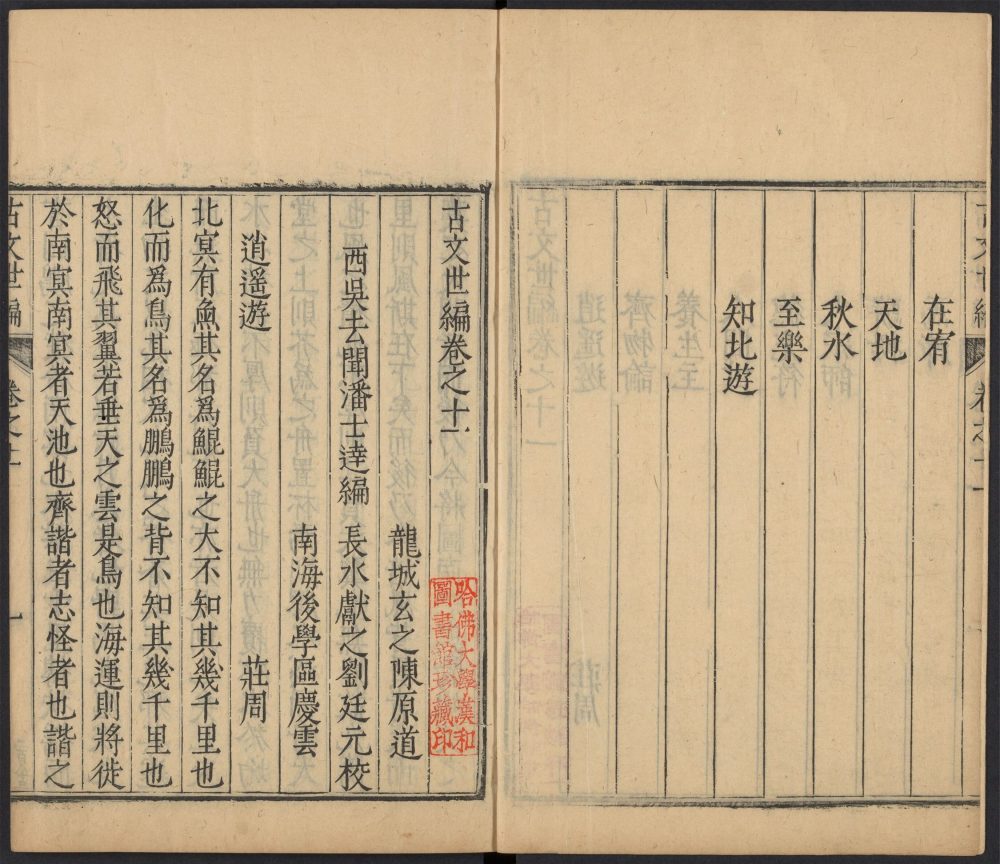 古文世編 卷之十一
在宥
天地
秋水
至樂
知北遊
古文世編卷之十一
龍城玄之陳原道
西吳去聞潘士達編 長水獻之劉廷元校
南海後學區慶雲
逍遥遊 莊周
北㝠有魚其名爲鯤鯤之大不知其幾千里也
化而爲鳥其名爲鵬鵬之背不知其幾千里也
怒而飛其翼若垂天之雲是鳥也海運則將徙
於南㝠南㝠者天池也齊諧者志怪者也諧之
古文世編 卷之十一 一
哈佛大學漢和
圖書館珍藏印